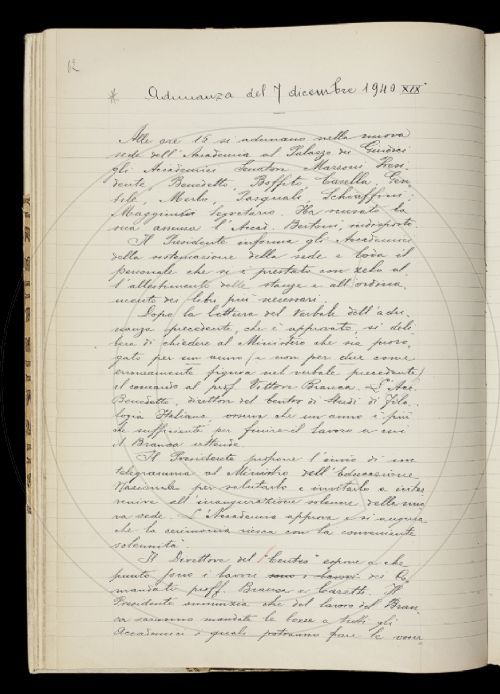 12
* Adunanza del 7 dicembre 1940 XIX°
Alle ore 15 si adunano nella nuova
sede dell'Accademia al Palazzo dei Giudici
gli Accademici Senatori Mazzoni, Presi-
dente, Benedetto, Boffito, Casella, Gen-
tile, Merlo, Pasquali, Schiaffini,
Maggini Segretario. Ha scusato la
sua assenza l'Accad. Bertoni, indisposto.
Il Presidente informa gli Accademici
della sistemazione della sede e loda il
personale che si è prestato con zelo al-
l'allestimento delle stanze e all'ordina-
mento dei libri più necessari.
Dopo la lettura del Verbale dell'adu-
nanza precedente, che è approvato, si deli-
bera di chiedere al Ministero che sia proro-
gato per un anno (e non per due come
erroneamente figura nel verbale precedente)
il comando al prof. Vittore Branca. L'Acc.
Benedetto, direttore del Centro di Studi di Filo-
logia Italiana osserva che un anno è più
che sufficiente per finire il lavoro a cui
il Branca attende.
Il Presidente propone l'invio di un
telegramma al Ministro dell'Educazione
Nazionale per salutarlo e invitarlo a inter-
venire all'inaugurazione solenne della nuo-
va sede. L'Accademia approva e si augura
che la cerimonia riesca con la conveniente
solennità.
Il Direttore del "Centro" espone a che
punto sono i lavori dei Co-
mandati proff. Branca e Caretti. Il
Presidente annunzia che del lavoro del Bran-
ca saranno mandate le bozze a tutti gli
Accademici i quali potranno fare le osser-